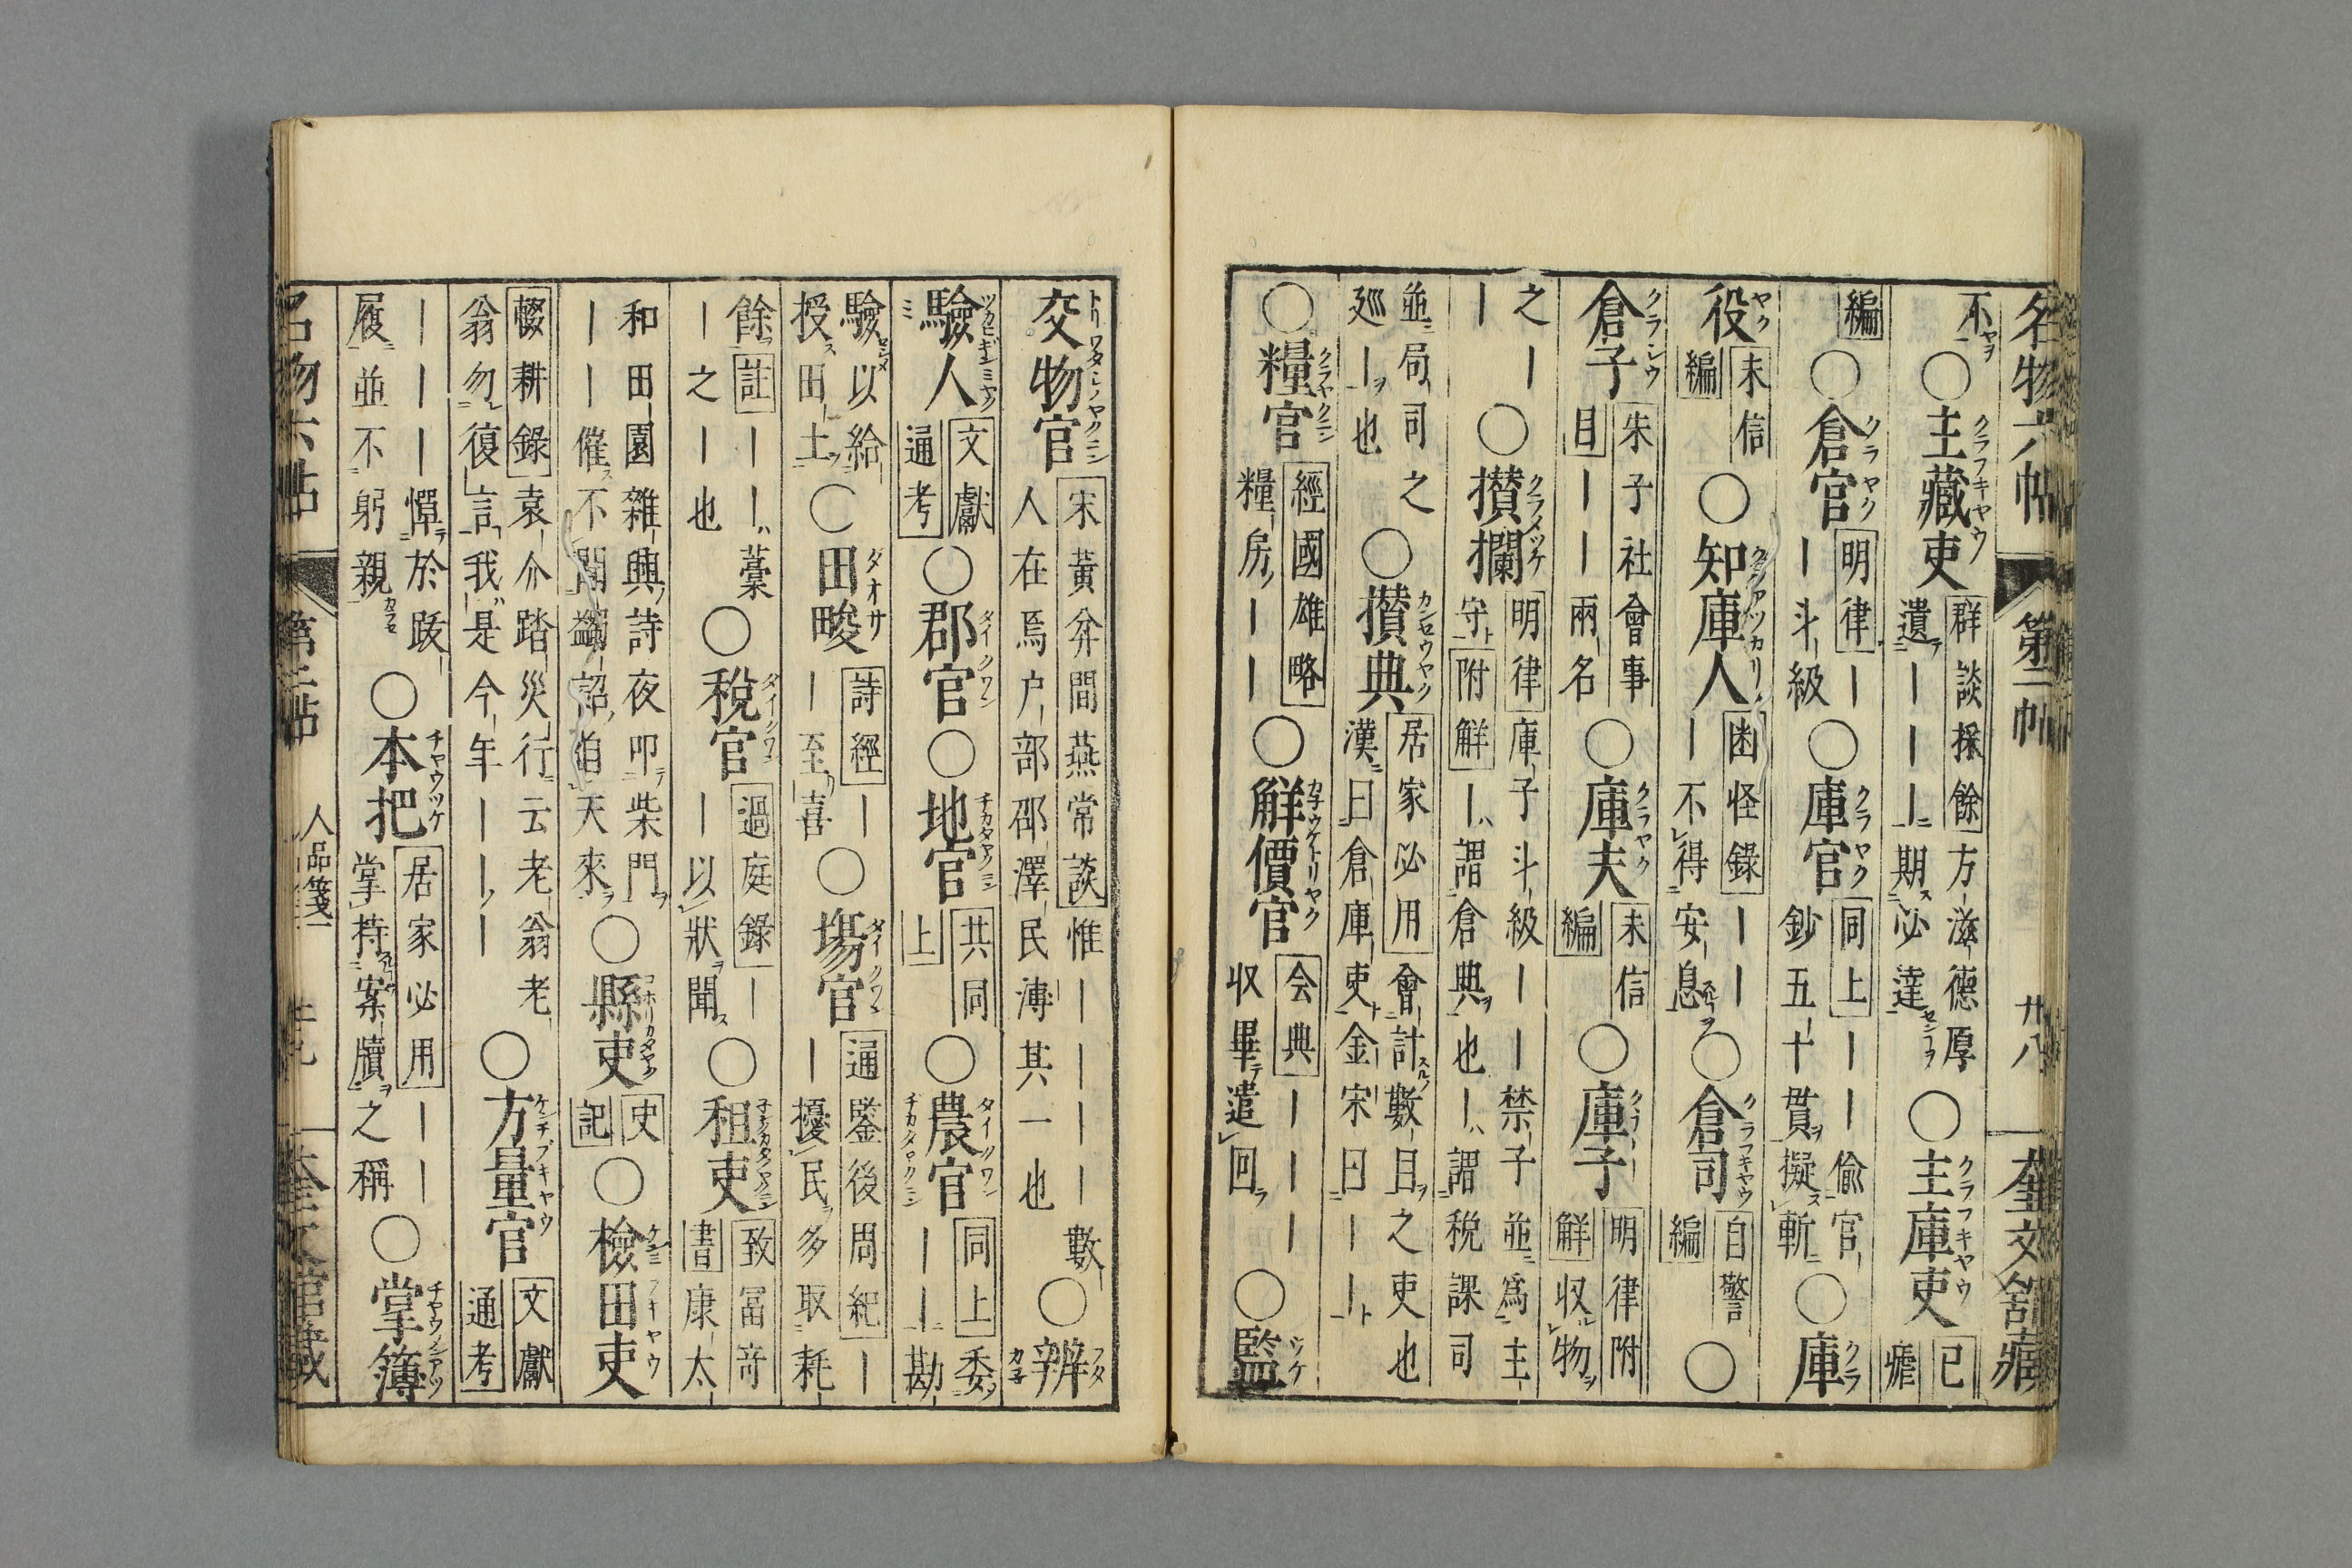 名物六帖 第二帖 廿八 奎文館藏
不 ○主藏吏 群談採餘 方滋德厚
遺｜｜｜期必達 ○主庫吏 已瘧
編 ○倉官 明律 ｜｜斗級 ○庫官 同上 ｜｜偸官鈔五十貫擬斬 ○庫
役 未信編 ○知庫人 幽怪錄 ｜｜｜不得安息 ○倉司 自警編 ○
倉子 朱子社會事目 ｜｜｜兩名 ○庫夫 未信編 ○庫子 明律附解 収物
之｜｜ ○攅攔 明律 庫子斗級｜｜禁子並爲主
守 附解 ｜謂倉典也｜謂稅課司
並局司之巡｜也 ○攅典 居家必用 會計數目之吏也
漢曰倉庫吏金宋曰｜｜
○糧官 經國雄略 糧房｜｜ ○解價官 会典 ｜｜｜収畢遣回 ○監
交物官 宋黄㢧間燕常談 惟｜｜｜｜數
人在焉户部邵澤民溥其一也 ○辨
驗人 文獻通考 ○郡官 ○地官 共同上 ○農官 同上 委｜｜勘
驗以給授田土 ○田畯 詩經 ｜｜至喜 ○場官 通鑒後周紀 ｜｜擾民多取耗
餘 註 ｜｜藁｜之｜也 ○稅官 過庭錄 ｜｜以狀聞 ○租吏 致冨竒書 康太
和田園雜興詩夜叩柴門
｜｜催不聞蠲詔自天來 ○縣吏 史記 ○檢田吏
輟耕錄 袁介踏災行云老翁老
翁勿復言我是今年｜｜｜ ○方量官 文獻通考
｜｜｜憚於跋
履並不躬親 ○本把 居家必用 ｜｜掌持案牘之稱 ○掌簿
名物六帖 第二帖 人品箋 奎文館藏